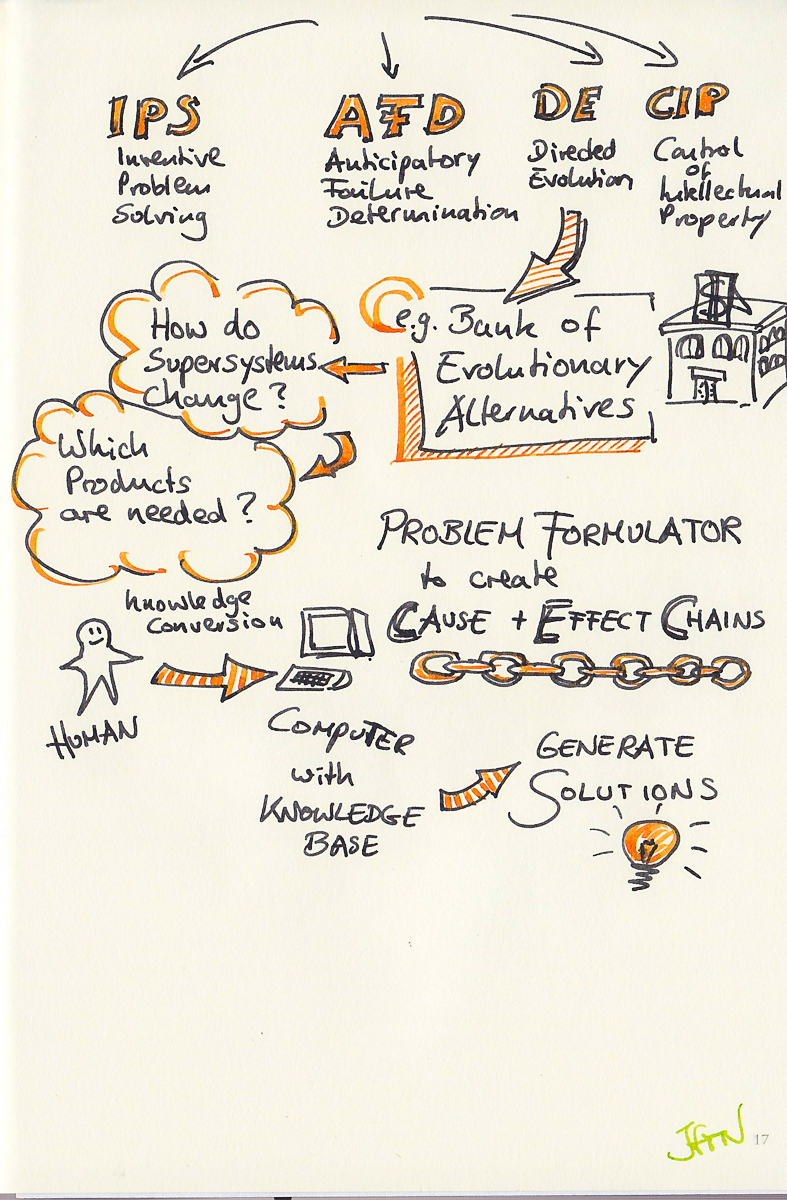 IPS
Inventive
Problem
Solving
AFD
Anticipatory
Failure
Determination
DE
Directed
Evolution
CIP
Control
of
Intellectual
Property
e.g. Bank of
Evolutionary
Alternatives
$
How do
Supersystems
change?
Which
Products
are needed?
PROBLEM FORMULATOR
to create
CAUSE + EFFECT CHAINS
knowledge
conversion
HUMAN
COMPUTER
with
KNOWLEDGE
BASE
GENERATE
SOLUTIONS
17